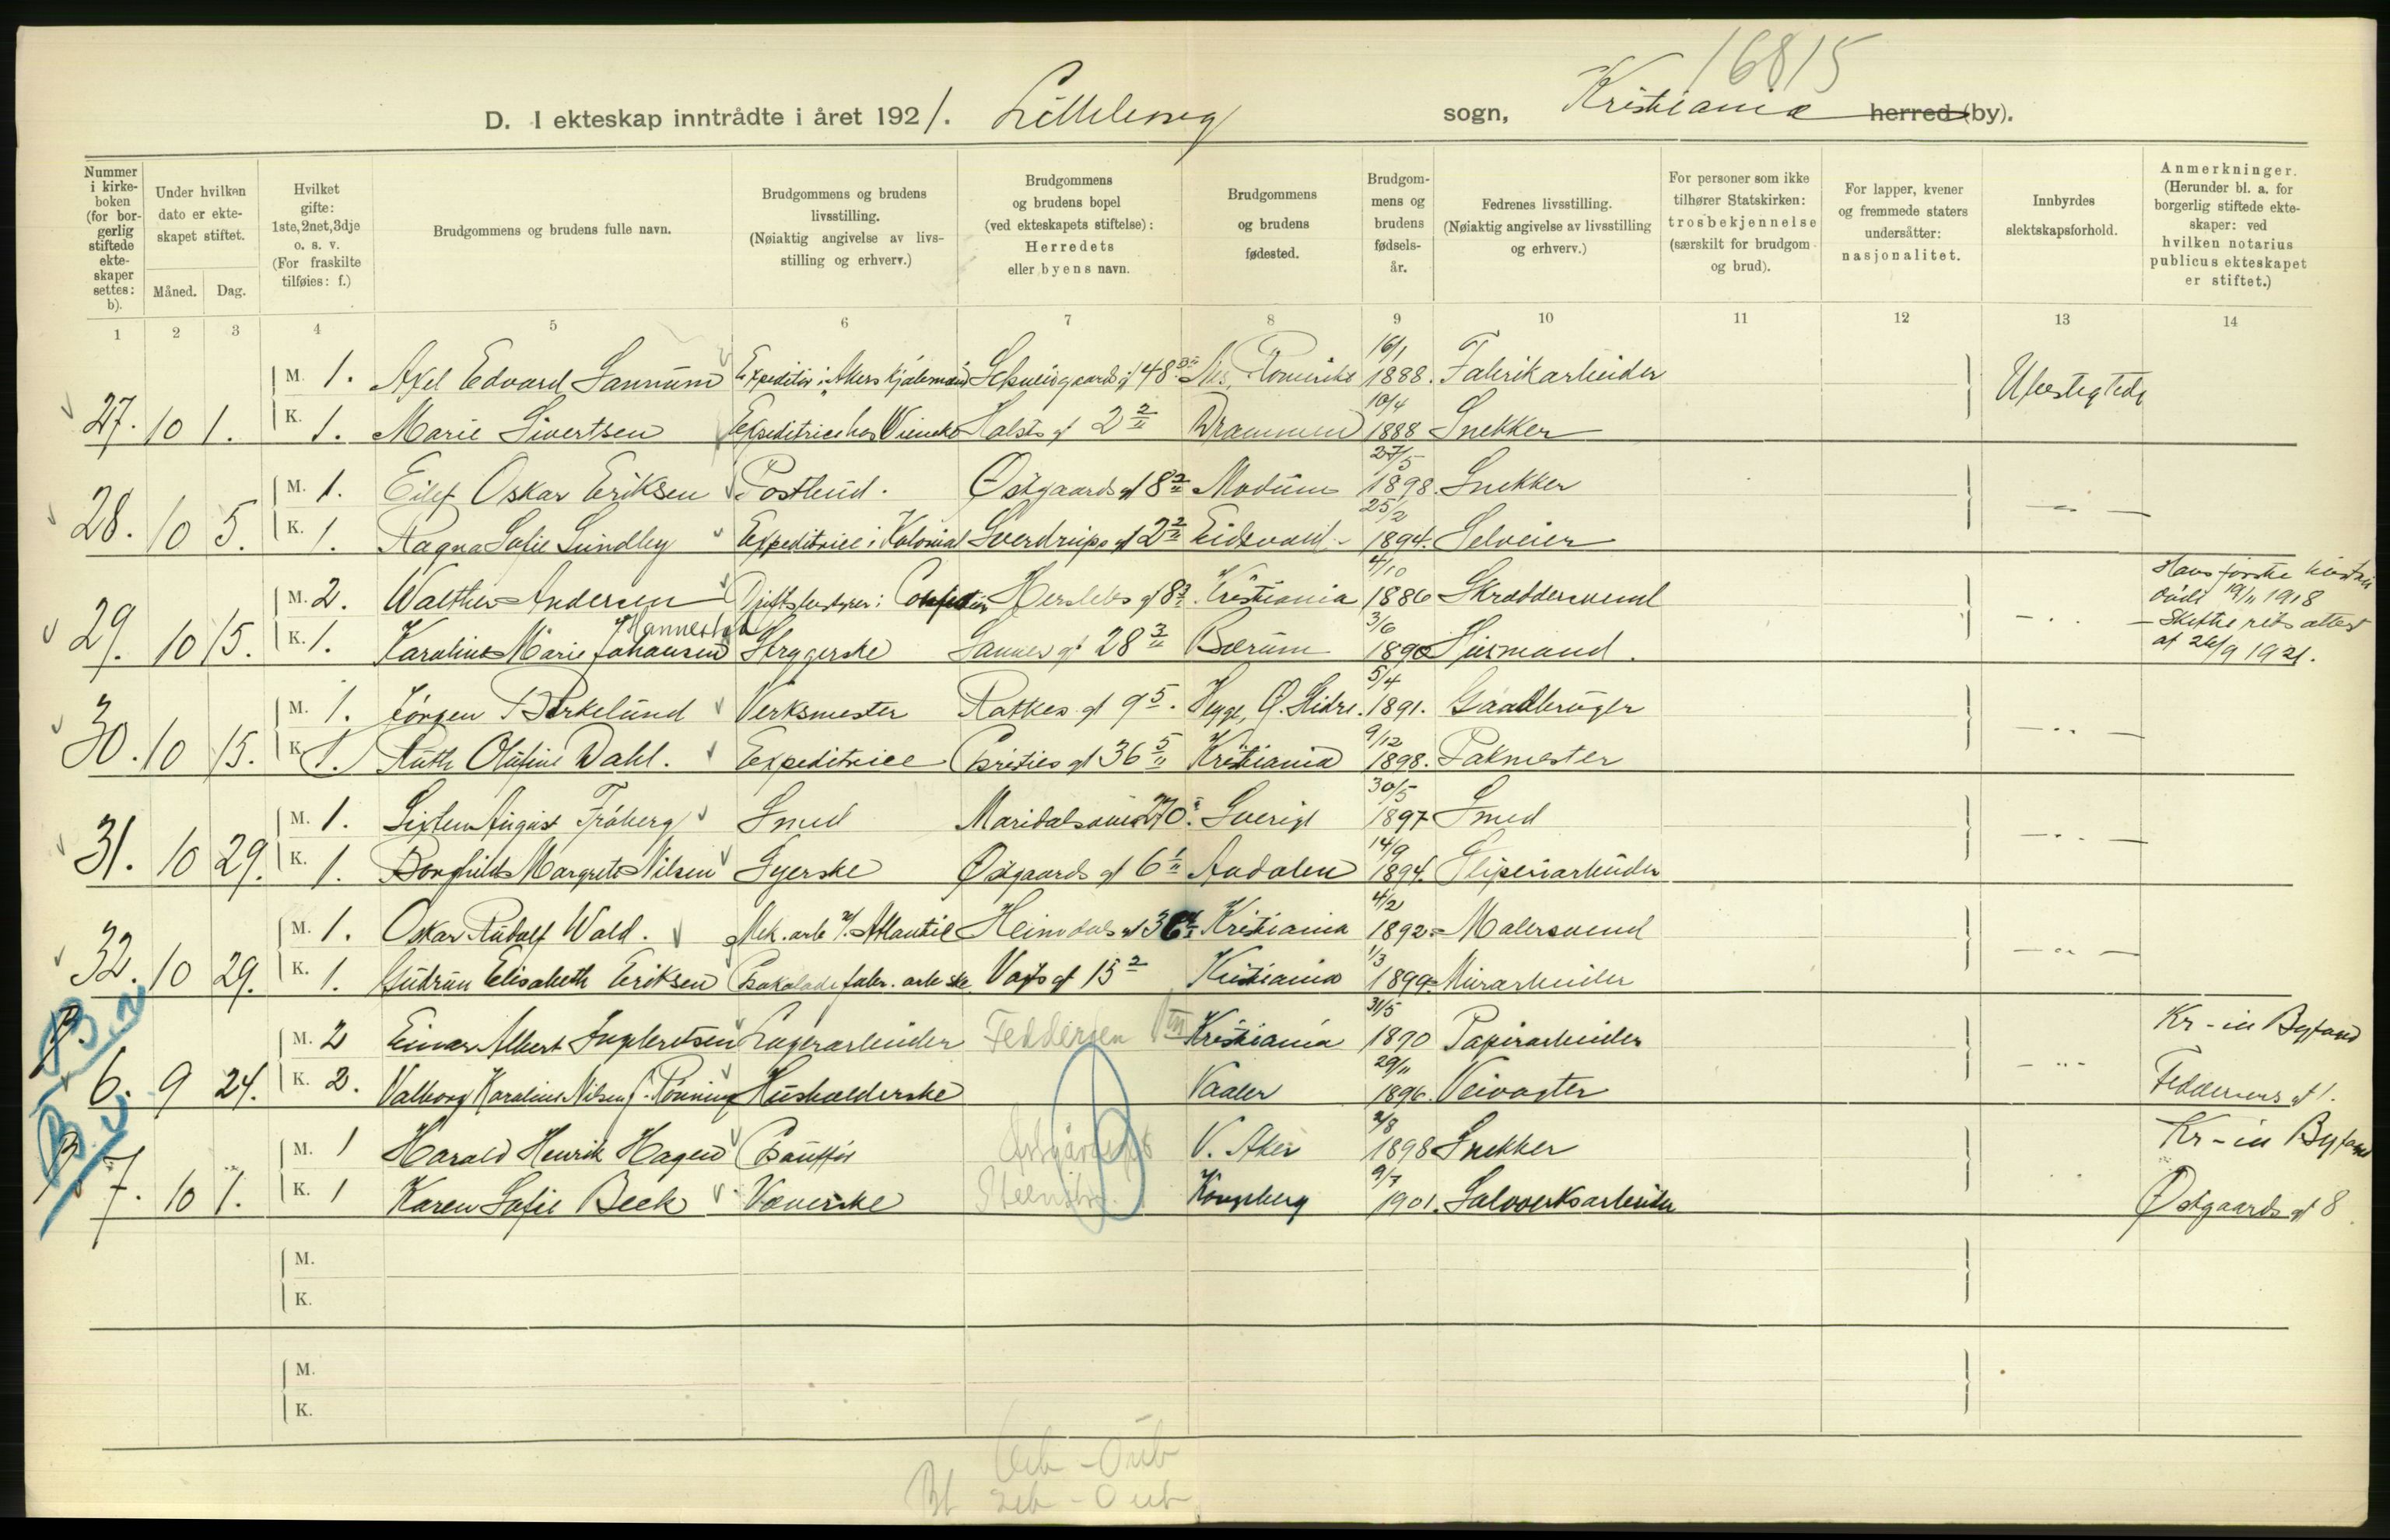 16815
D. I ekteskap inntrådte i året 1921. Lilleborg sogn, Kristiania herred (by).
Nummer i kirke-boken (for bor-gerlig stiftede ekte-skaper settes: b).
Under hvilken dato er ekte-skapet stiftet.
Måned. Dag.
Hvilket gifte: 1ste, 2net, 3dje o. s. v. (For fraskilte tilføies: f.)
Brudgommens og brudens fulle navn.
Brudgommens og brudens livsstilling. (Nøiaktig angivelse av livs-stilling og erhverv.)
Brudgommens og brudens bopel (ved ekteskapets stiftelse): Herredets eller byens navn.
Brudgommens og brudens fødested.
Brudgom-mens og brudens fødsels-år.
Fedrenes livsstilling. (Nøiaktig angivelse av livsstilling og erhverv.)
For personer som ikke tilhører Statskirken: trosbekjennelse (særskilt for brudgom og brud).
For lapper, kvener og fremmede staters undersåtter: nasjonalitet.
Innbyrdes slektskapsforhold.
Anmerkninger. (Herunder bl. a. for borgerlig stiftede ekte-skaper: ved hvilken notarius publicus ekteskapet er stiftet.)
1 2 3 4 5 6 7 8 9 10 11 12 13 14
M. 1. Axel Edvard Sannum Expeditør i Akers Schweigaards gt 48 Romerike 16/1 1888. Fabrikarbeider Ubeslegtede
27. 10 1. K. 1. Marie Sivertsen Expeditrice hos Halsts gt 2 Drammen 10/4 1888 Snekker
M. 1. Eilef Oskar Eriksen Postbud. Østgaards gt 8 Modum 27/5 1898. Snekker
28. 10 5. K. 1. Ragna Sofie Lundby Expeditrice i Kolonial Sverdrups gt 2 Eidsvold 25/2 1894. Selveier
M. 2. Walther Andersen Herslebs gt 8 Kristiania 4/10 1886 Skræddersvend Hans første hustru døde 19/11 1918
Hannestad
29. 10 15. K. 1. Karoline Marie Johansen Strygerske Sannes gt 28 Bærum 3/6 1890 Husmand. Skifte rets attest af 26/9 1921.
M. 1. Jörgen Birkelund Verksmester Ratkes gt 9 Hegge, Ø. Slidre. 5/4 1891. Gaardbruger
30. 10 15. K. 1. Ruth Olufine Dahl. Expeditrice Cristies gt 36 Kristiania 9/12 1898. Pakmester
M. 1. Sixten August Fröberg Smed Maridalsveien 270 Sverige 30/5 1897 Smed
31. 10 29. K. 1. Borghild Margrete Nilsen Syerske Østgaards gt 6 Aadalen 14/9 1894. Sliperiarbeider
M. 1. Oskar Rudolf Wold. Mek. arb. Atlantic Heimdals gt 36 Kristiania 4/2 1892 Malersvend
32. 10 29. K. 1. Gudrun Elisabeth Eriksen fabr. arb.ske Vogts gt 15 Kristiania 1/3 1899 Murarbeider
B. M. 2 Einar Albert Ingebretsen Lagerarbeider Feddersen Kristiania 31/5 1890 Papirarbeider Kr-ia Byfogd
6. 9 24. K. 2. Valborg Karoline Nilsen f. Rönning Husholderske Vaaler 29/11 1896. Veivogter Feddersens gt 1.
B M. 1 Harald Henrik Hagen Chauffør Østgårds gt 8 V. Aker 2/8 1898 Snekker Kr-ia Byfogd
7. 10 1. K. 1 Karen Sofie Beck Væverske Kongsberg 9/7 1901. Sølvverksarbeider Østgaards gt 8
M.
K.
M.
K.